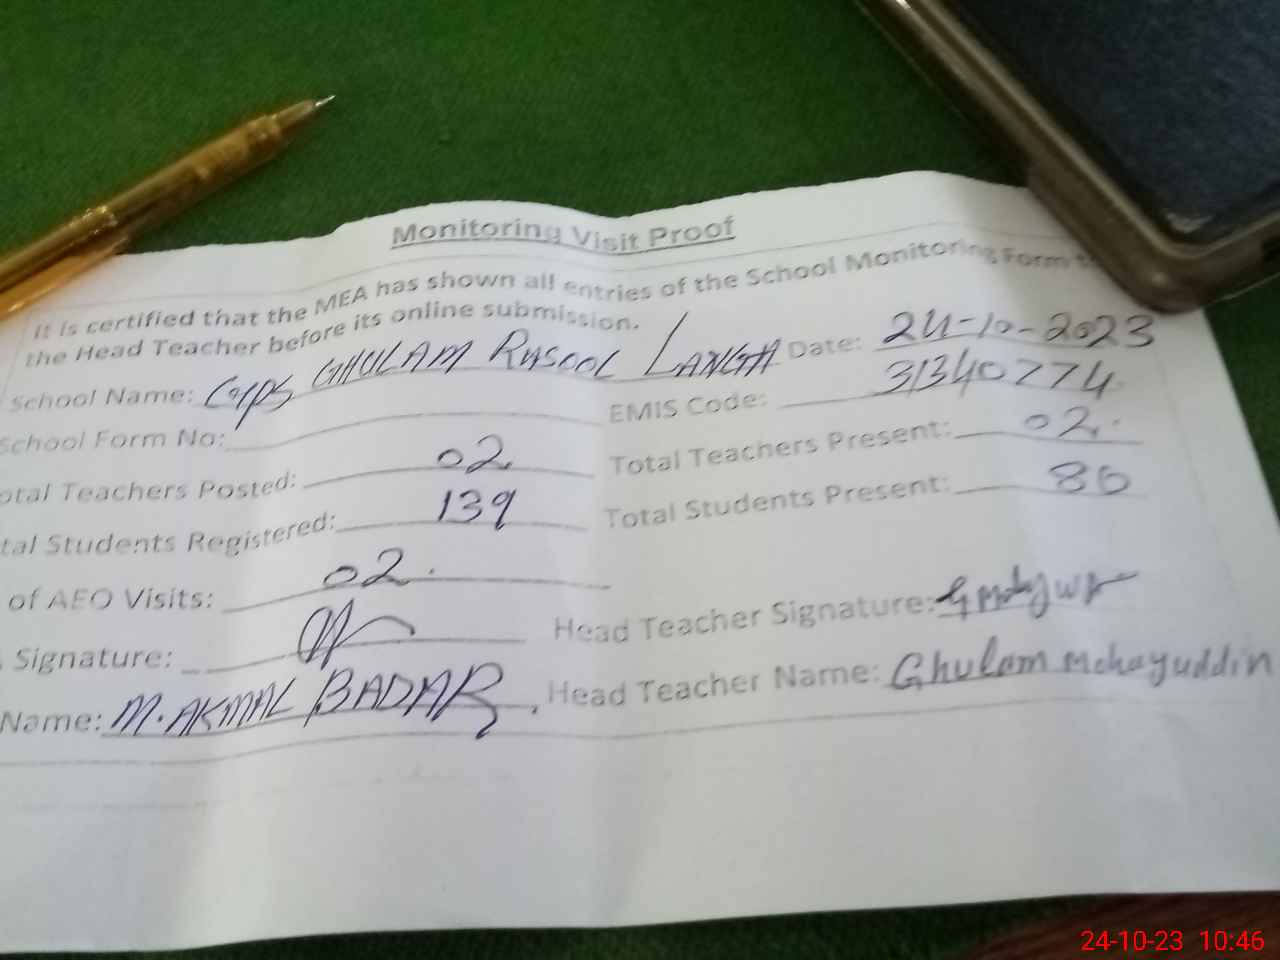 Monitoring Visit Proof
It is certified that the MEA has shown all entries of the School Monitoring Form
the Head Teacher before its online submission.
School Name: GHULAM RASOOL LANGHA Date: 24-10-2023
EMIS Code: 31340774
School Form No:
otal Teachers Posted: 02 Total Teachers Present: 02
tal Students Registered: 139 Total Students Present: 80
of AEO Visits: 02
Signature: Head Teacher Signature:
Name: M. AKMAL BADAR Head Teacher Name: Ghulam Mohayuddin
24-10-23 10:46